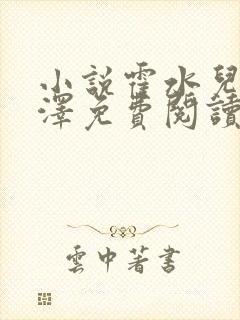 小説霍水兒
澤免費閱讀
雲中著書